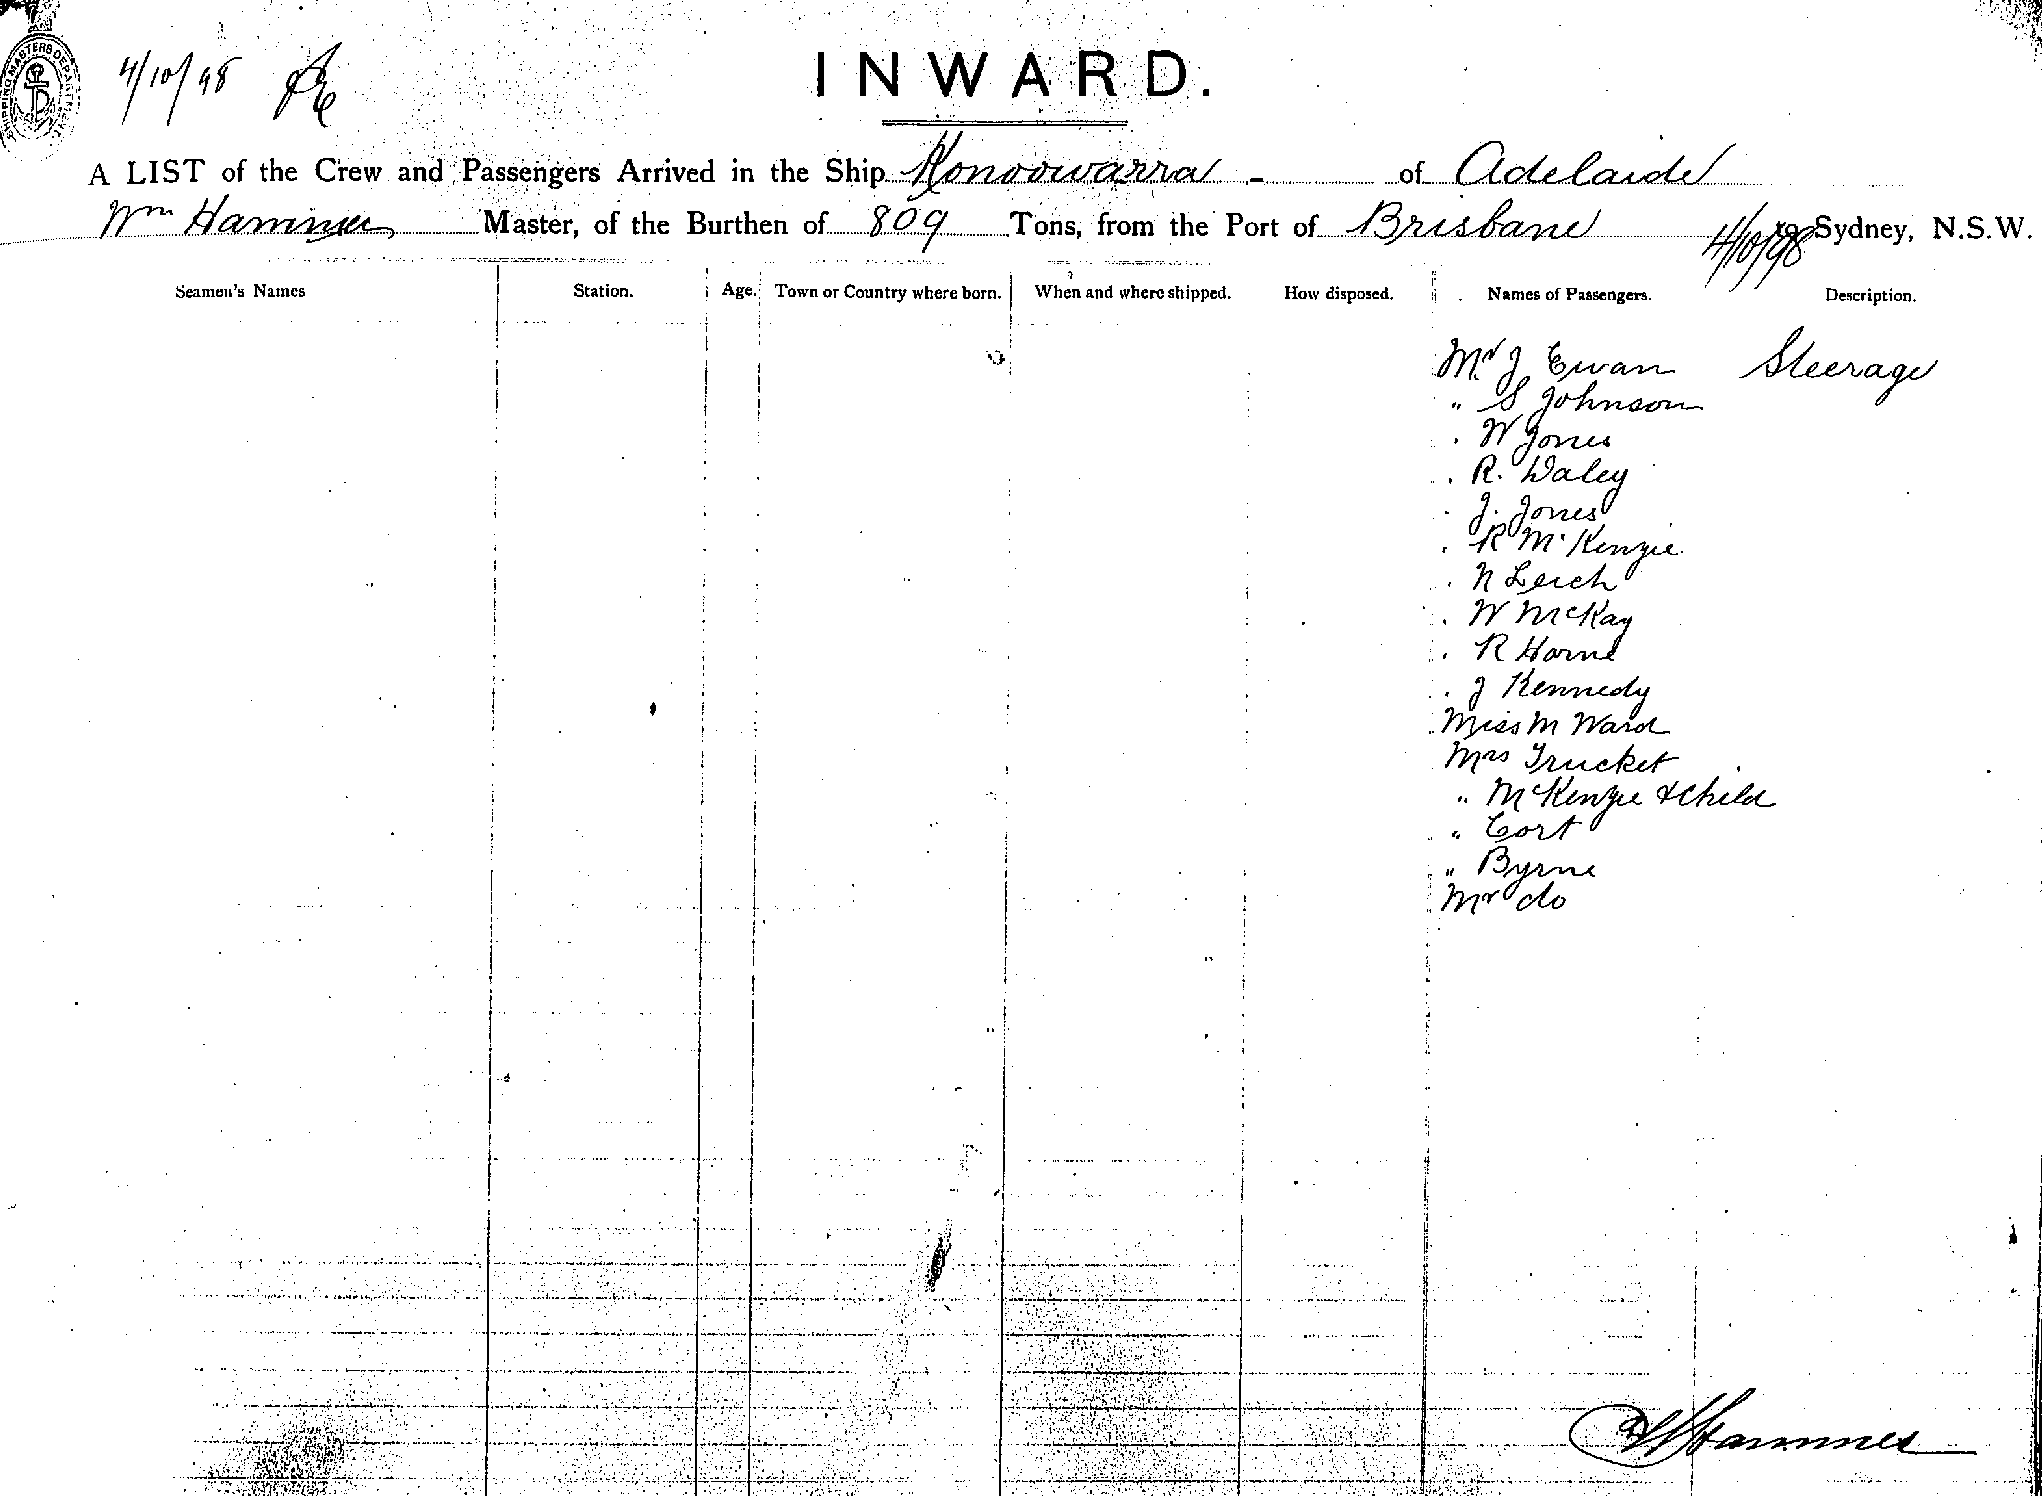 SHIPPING MASTERS DEPARTMENT
4/10/98
INWARD.
A LIST of the Crew and Passengers Arrived in the Ship Konoowarra - of Adelaide
Wm Master, of the Burthen of 809 Tons, from the Port of Brisbane to Sydney, N.S.W.
4/10/98
Seamen's Names Station. Age. Town or Country where born. When and where shipped. How disposed. Names of Passengers. Description.
Mr J Ewan Steerage
" S Johnson
. W Jones
. R. Daley
. J. Jones
. R McKenzie
. N Leich
. W McKay
. R Horne
. J Kennedy
Miss M Ward
Mrs Trucket
" McKenzie & Child
" Cort
" Byrne
Mr do